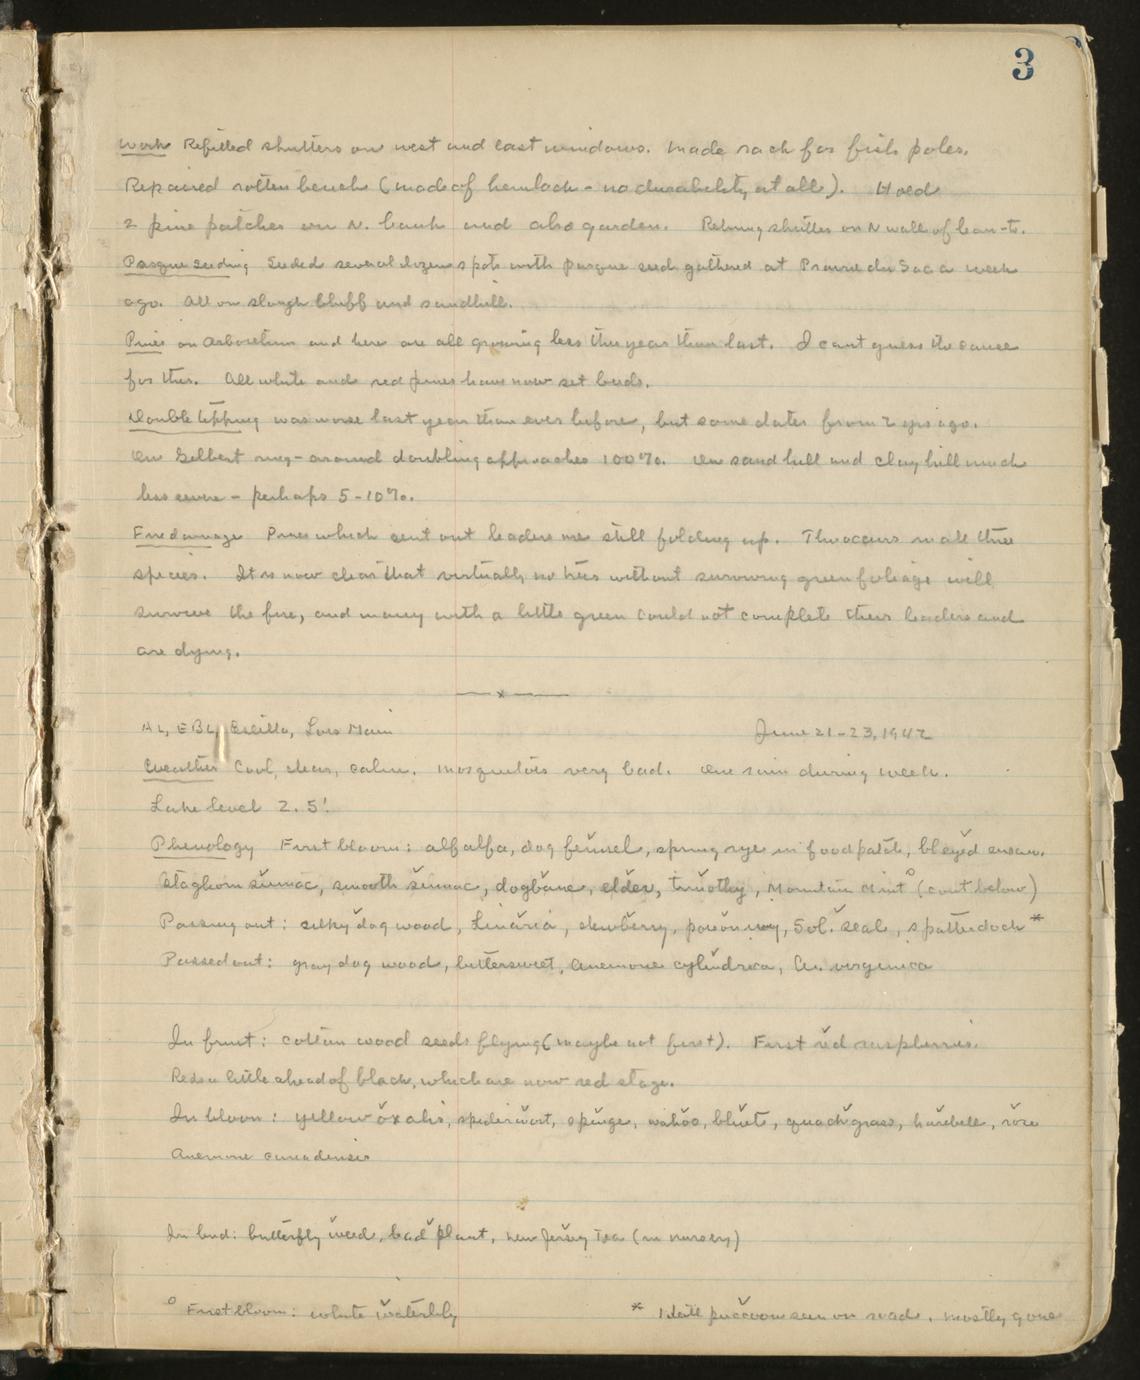 3
Work Refitted shutters on west and east windows. Made rack for fish poles.
Repaired rotten bench (made of hemlock - no durability at all). Hoed
2 pine patches on N. bank and also garden. Rehung shutter on N wall of lean-to.
Pasque Seeding Seeded several dozen spots with pasque seed gathered at Prairie du Sac a week
ago. All on slough bluff and sandhill.
Pines on Arboretum and here are all growing less this year than last. I cant guess the cause
for this. All white and red pines have now set buds.
Double tipping was worse last year than ever before, but some dates from 2 yrs ago.
On Gilbert ring-around doubling approaches 100%. On sand hill and clay hill much
less severe - perhaps 5-10%.
Fire damage Pines which sent out leaders are still folding up. This occurs in all three
species. It is now clear that virtually no trees without surviving green foliage will
survive the fire, and many with a little green could not complete their leaders and
are dying.
x
AL, EBL, Estella, Lois Main June 21-23, 1942
Weather Cool, clear, calm. Mosquitoes very bad. One rain during week.
Lake level 2.5'.
Phenology First bloom: alfalfa, dog fennel, spring rye in food patch, bl eyed susan.
Staghorn sumac, smooth sumac, dogbane, elder, timothy, Mountain Mint° (cont below)
Passing out: silky dogwood, Linaria, dewberry, poison ivy, Sol. seal, spatterdock *
Passed out: gray dogwood, bittersweet, Anemone cylindrica, An. virginica
In fruit: cottonwood seeds flying (maybe not first). First red raspberries.
Reds a little ahead of black, which are now red stage.
In bloom: yellow oxalis, spiderwort, spurge, wahoo, bluets, quack grass, harebell, rose
Anemone canadensis
In bud: butterfly weed, lead plant, New Jersey Tea (in nursery)
° First bloom: white waterlily * puccoon seen on road, mostly gone